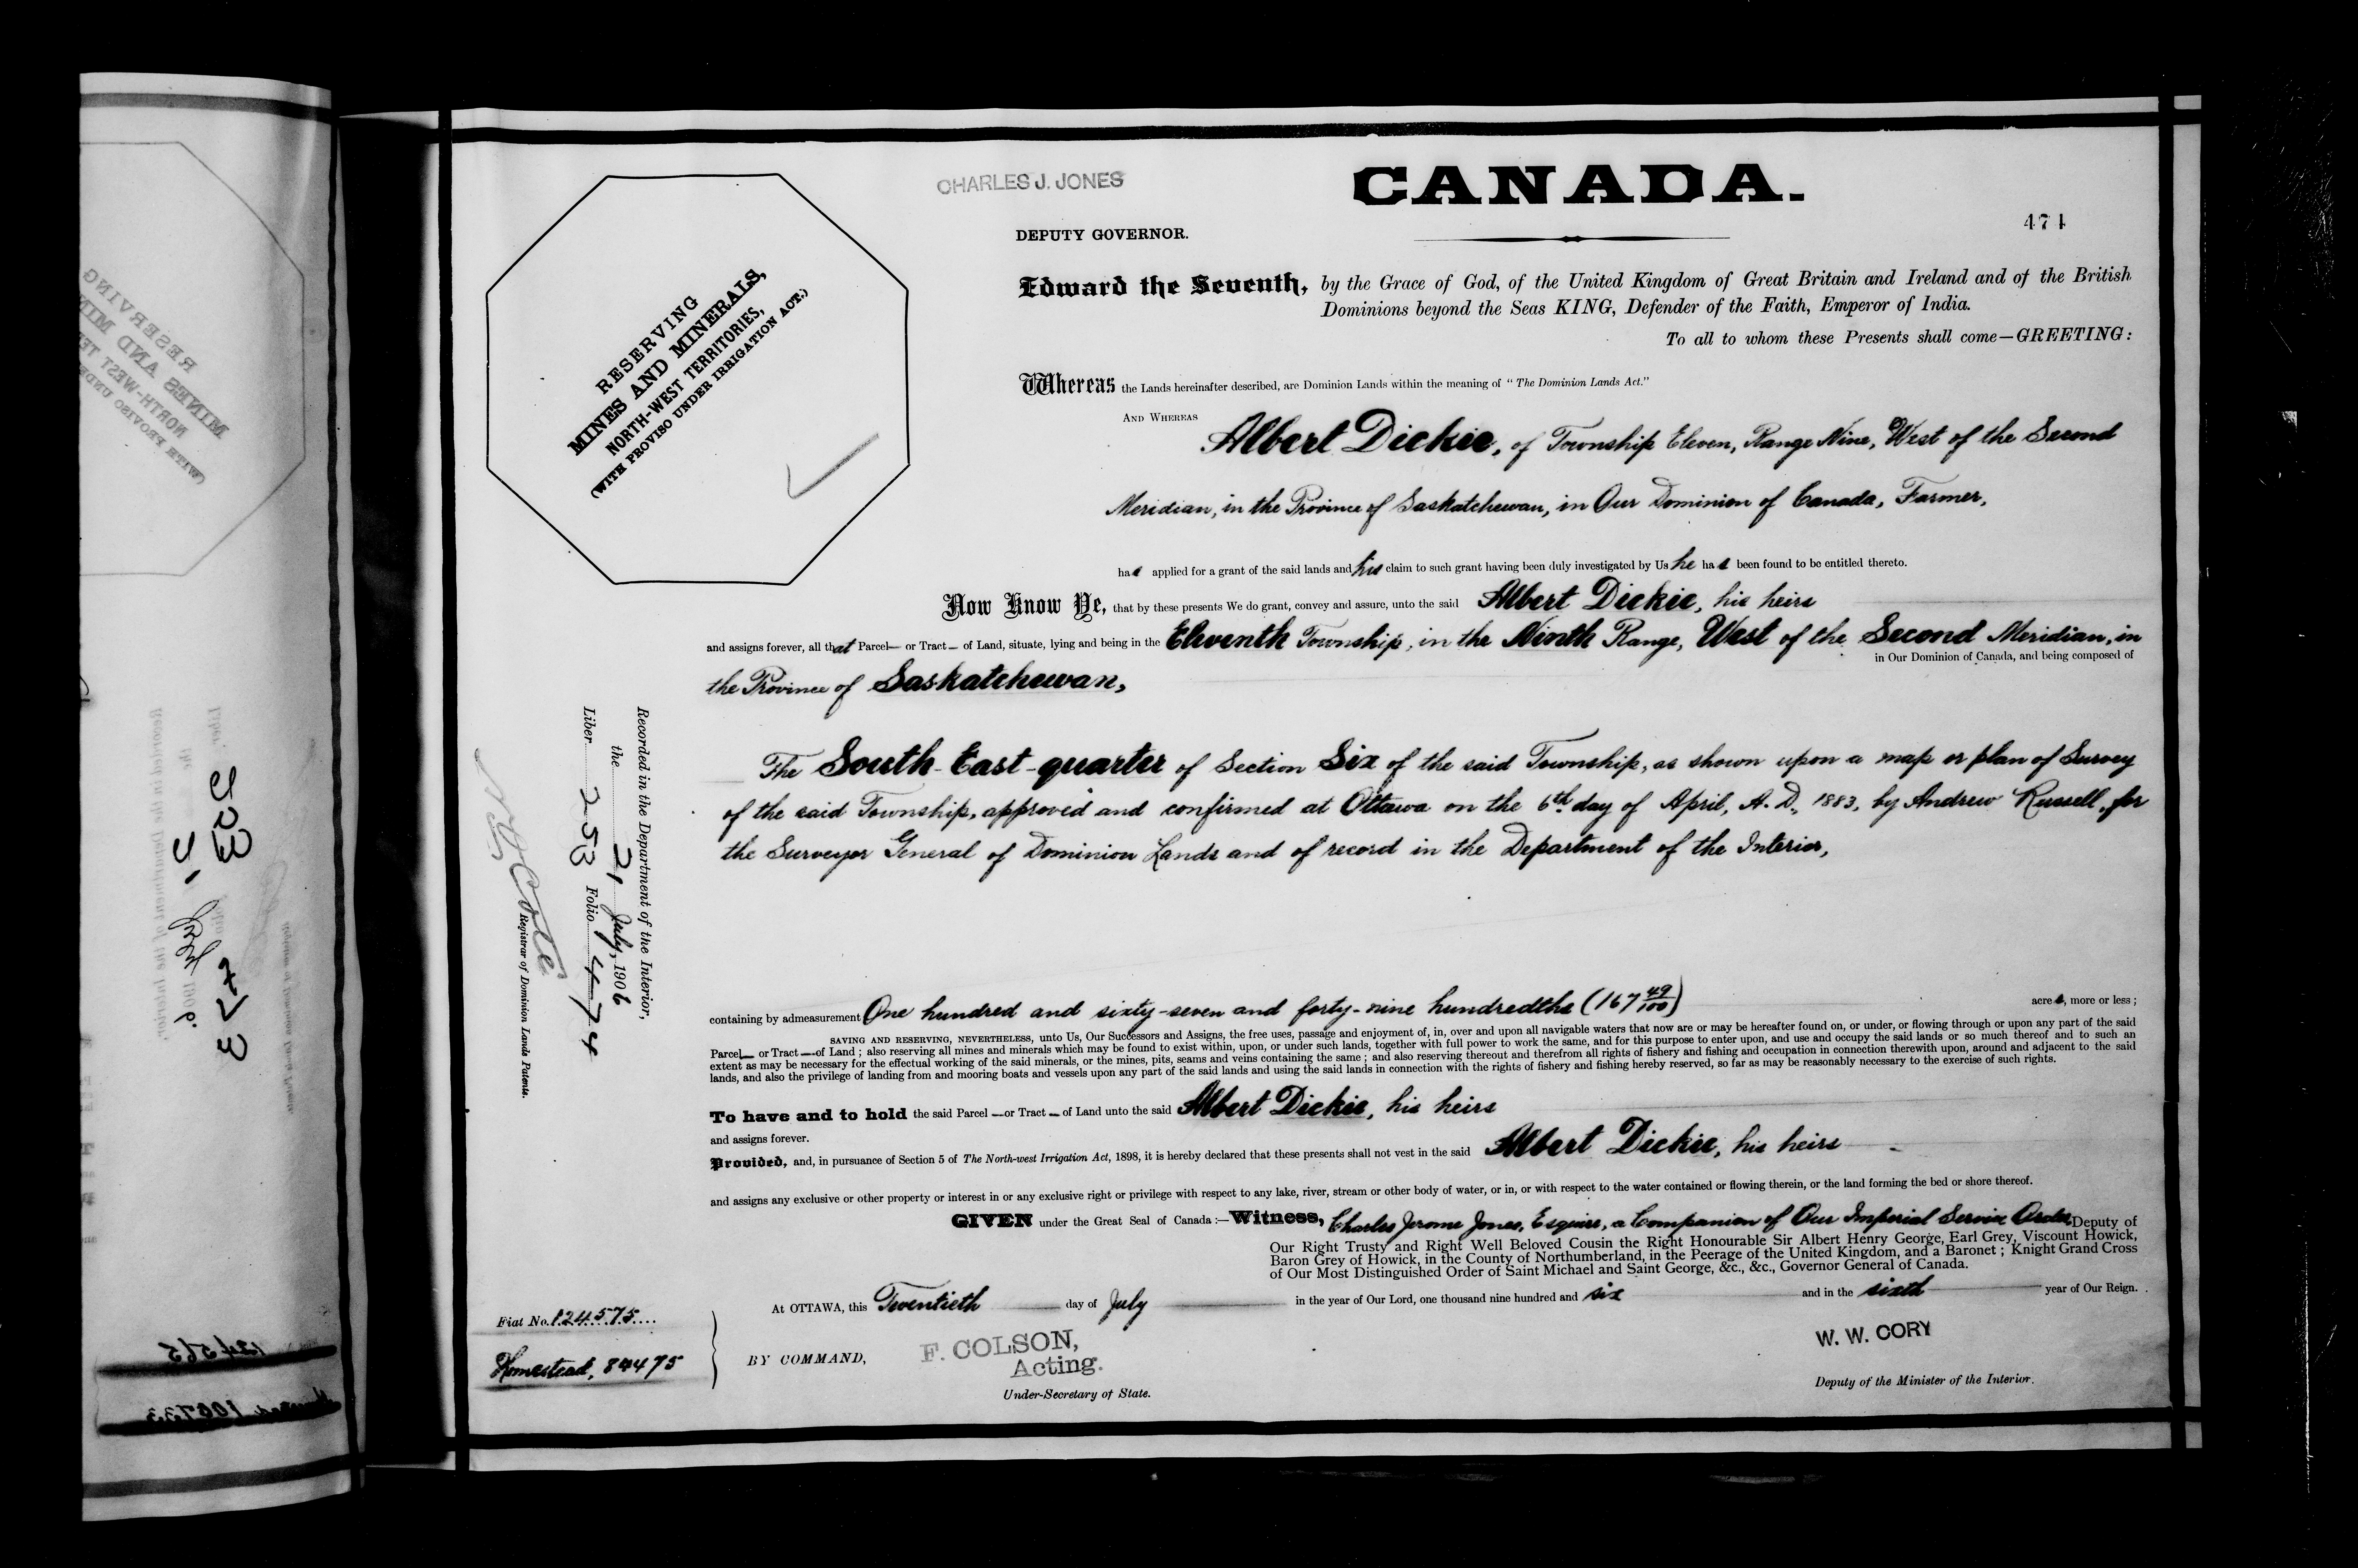 CHARLES J. JONES
CANADA.
DEPUTY GOVERNOR.
474
Edward the Seventh, by the Grace of God, of the United Kingdom of Great Britain and Ireland and of the British
Dominions beyond the Seas KING, Defender of the Faith, Emperor of India.
To all to whom these Presents shall come—GREETING:
RESERVING
MINES AND MINERALS,
NORTH-WEST TERRITORIES,
(WITH PROVISO UNDER IRRIGATION ACT.)
Whereas the Lands hereinafter described, are Dominion Lands within the meaning of "The Dominion Lands Act."
AND WHEREAS
Albert Dickie, of Township Eleven, Range Nine, West of the Second
Meridian, in the Province of Saskatchewan, in Our Dominion of Canada, Farmer,
has applied for a grant of the said lands and his claim to such grant having been duly investigated by Us he has been found to be entitled thereto.
Now Know Ye, that by these presents We do grant, convey and assure, unto the said Albert Dickie, his heirs
and assigns forever, all that Parcel— or Tract— of Land, situate, lying and being in the Eleventh Township, in the Ninth Range, West of the Second Meridian, in
in Our Dominion of Canada, and being composed of
the Province of Saskatchewan,
The South-East-quarter of Section Six of the said Township, as shown upon a map or plan of Survey
of the said Township, approved and confirmed at Ottawa on the 6th day of April, A.D., 1883, by Andrew Russell, for
the Surveyor General of Dominion Lands and of record in the Department of the Interior,
Recorded in the Department of the Interior,
the 21 July, 1906
Liber 253 Folio 474
Registrar of Dominion Lands Patents.
containing by admeasurement One hundred and sixty-seven and forty-nine hundredths (167 49/100) acres, more or less;
SAVING AND RESERVING, NEVERTHELESS, unto Us, Our Successors and Assigns, the free uses, passage and enjoyment of, in, over and upon all navigable waters that now are or may be hereafter found on, or under, or flowing through or upon any part of the said
Parcel— or Tract—of Land; also reserving all mines and minerals which may be found to exist within, upon, or under such lands, together with full power to work the same, and for this purpose to enter upon, and use and occupy the said lands or so much thereof and to such an
extent as may be necessary for the effectual working of the said minerals, or the mines, pits, seams and veins containing the same; and also reserving thereout and therefrom all rights of fishery and fishing and occupation in connection therewith upon, around and adjacent to the said
lands, and also the privilege of landing from and mooring boats and vessels upon any part of the said lands and using the said lands in connection with the rights of fishery and fishing hereby reserved, so far as may be reasonably necessary to the exercise of such rights.
To have and to hold the said Parcel —or Tract— of Land unto the said Albert Dickie, his heirs
and assigns forever.
Provided, and, in pursuance of Section 5 of The North-west Irrigation Act, 1898, it is hereby declared that these presents shall not vest in the said Albert Dickie, his heirs
and assigns any exclusive or other property or interest in or any exclusive right or privilege with respect to any lake, river, stream or other body of water, or in, or with respect to the water contained or flowing therein, or the land forming the bed or shore thereof.
GIVEN under the Great Seal of Canada:—Witness, Charles Jerome Jones, Esquire, a Companion of Our Imperial Service Order, Deputy of
Our Right Trusty and Right Well Beloved Cousin the Right Honourable Sir Albert Henry George, Earl Grey, Viscount Howick,
Baron Grey of Howick, in the County of Northumberland, in the Peerage of the United Kingdom, and a Baronet; Knight Grand Cross
of Our Most Distinguished Order of Saint Michael and Saint George, &c., &c., Governor General of Canada.
At OTTAWA, this Twentieth day of July in the year of Our Lord, one thousand nine hundred and six and in the sixth year of Our Reign.
Fiat No. 124575
Homestead, 84475
BY COMMAND,
F. COLSON,
Acting.
Under-Secretary of State.
W. W. CORY
Deputy of the Minister of the Interior.